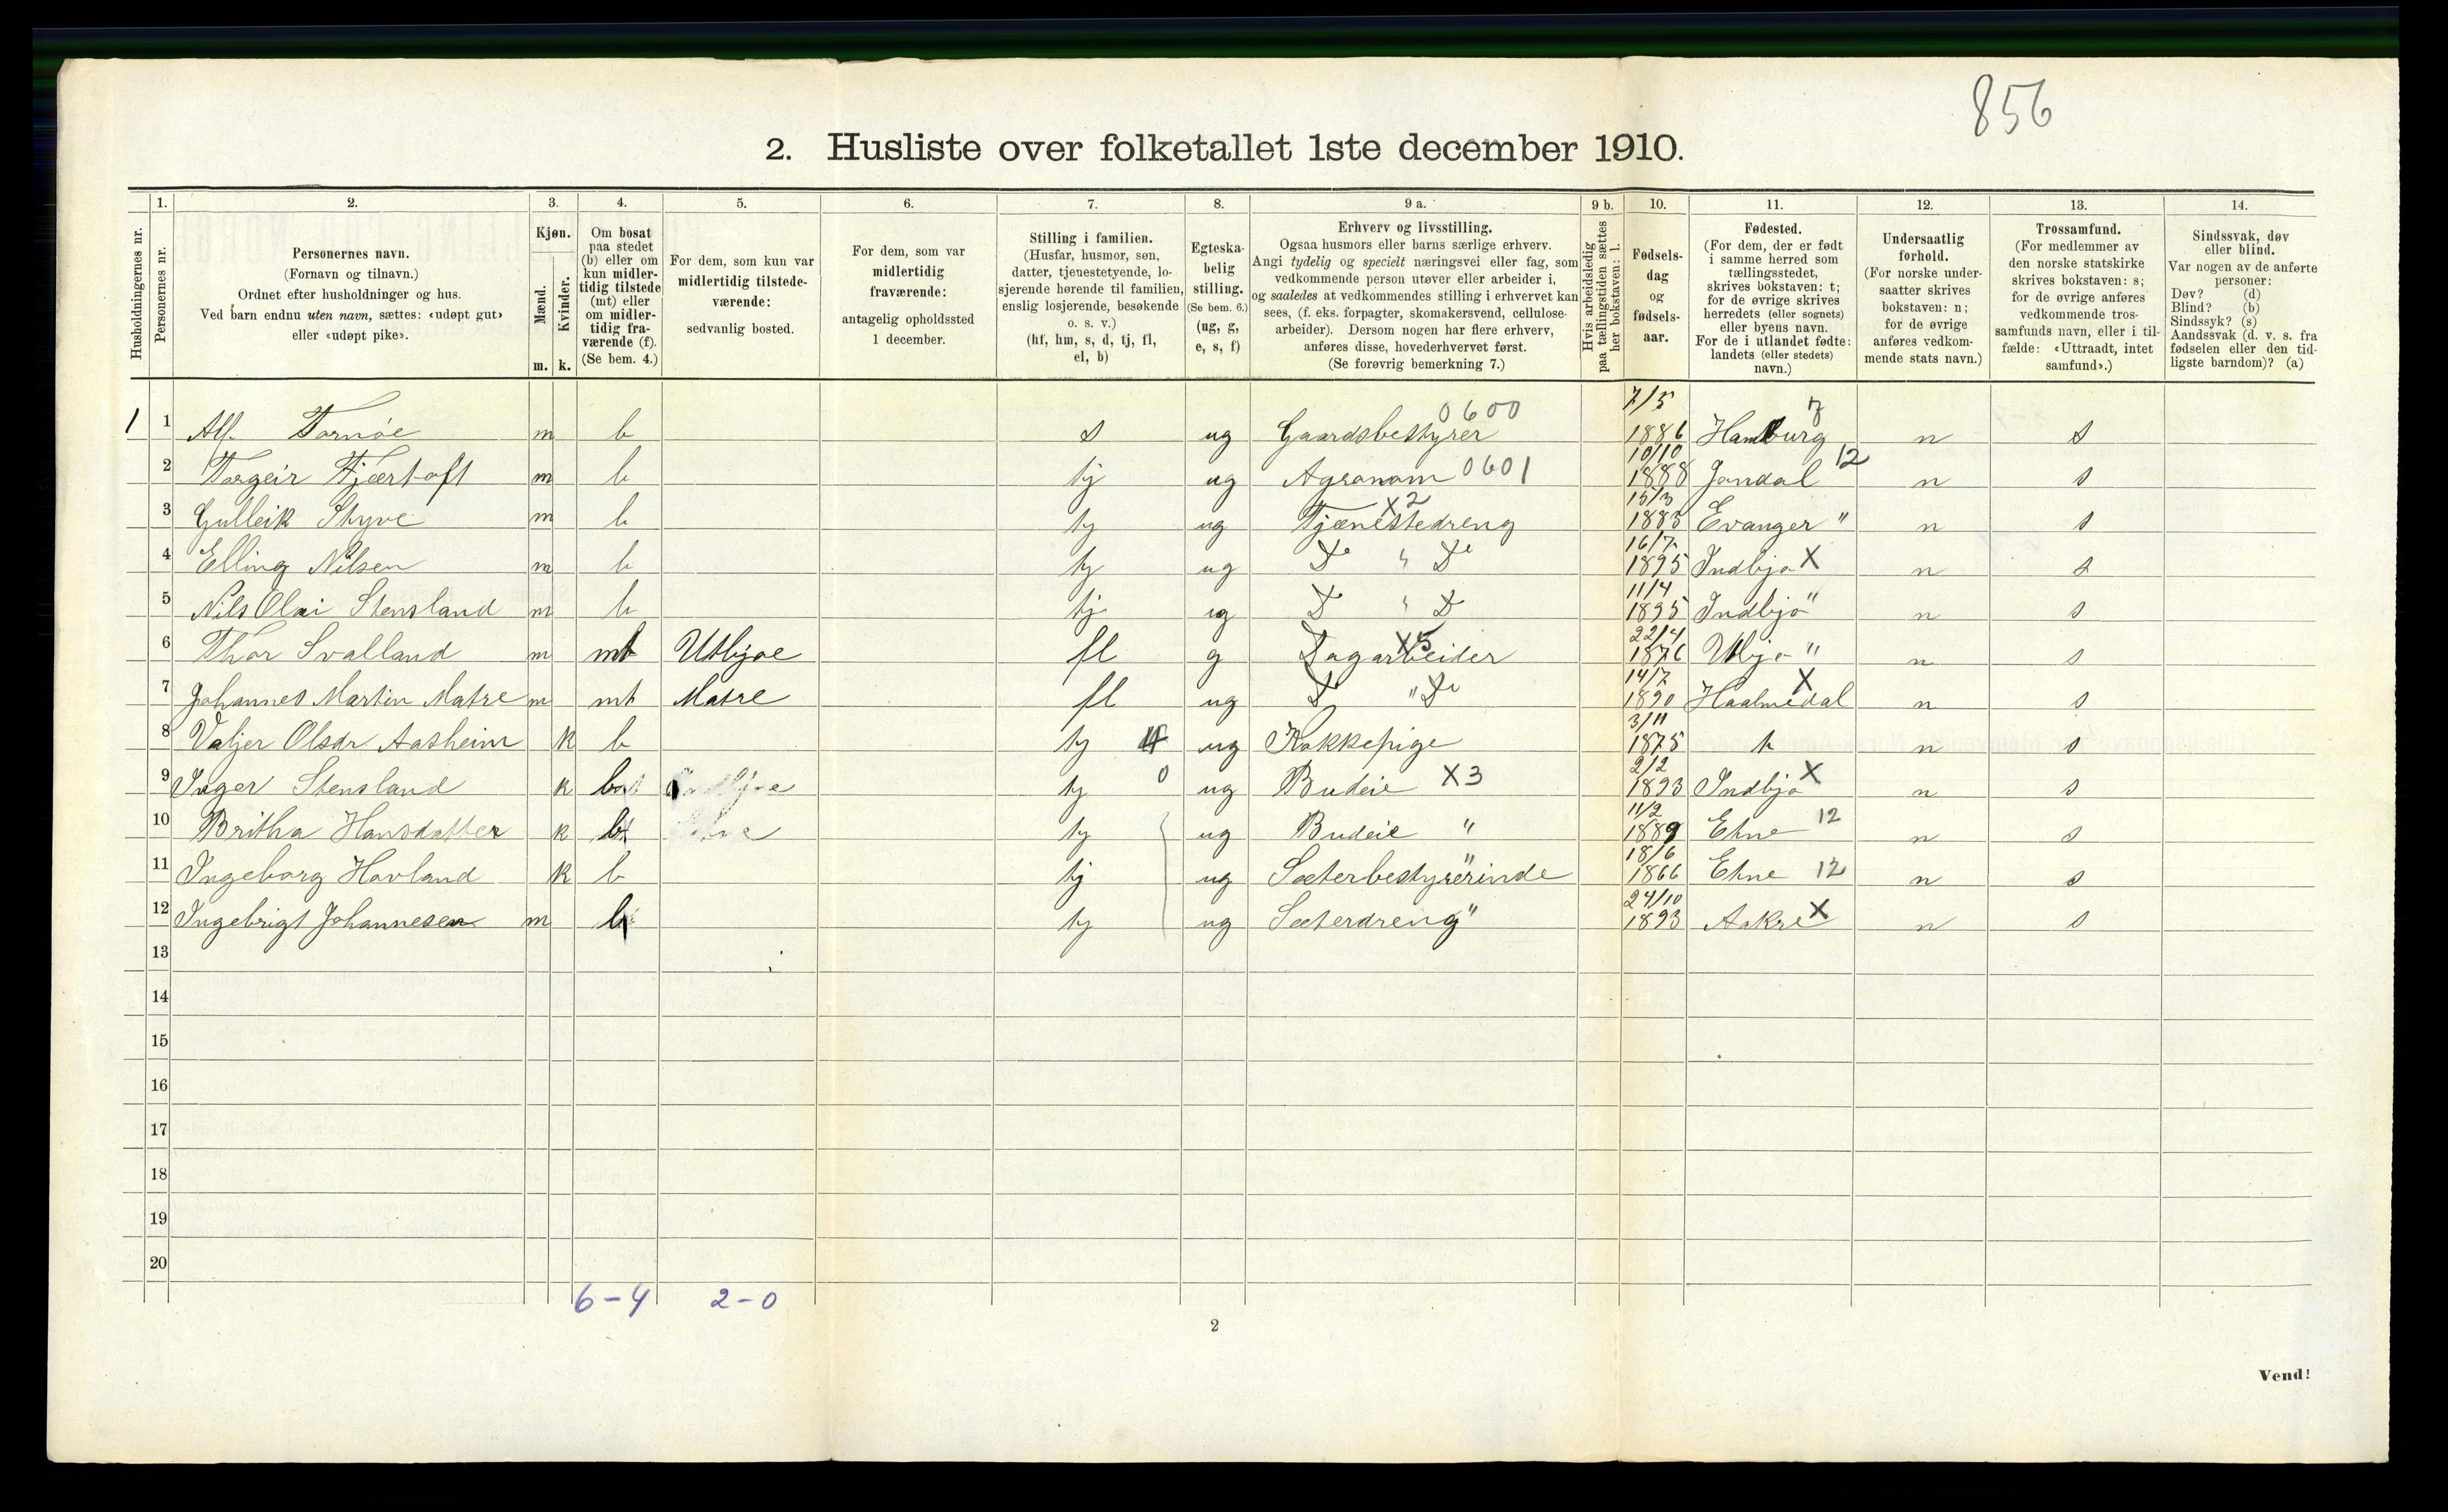 856
2. Husliste over folketallet 1ste december 1910.
1. 2. 3. 4. 5. 6. 7. 8. 9 a. 9 b. 10. 11. 12. 13. 14.
Husholdningernes nr.
Personernes nr.
Personernes navn.
(Fornavn og tilnavn.)
Ordnet efter husholdninger og hus.
Ved barn endnu uten navn, sættes: «udøpt gut»
eller «udøpt pike».
Kjøn.
Mænd.
Kvinder.
m. k.
Om bosat
paa stedet
(b) eller om
kun midler-
tidig tilstede
(mt) eller
om midler-
tidig fra-
værende (f).
(Se bem. 4.)
For dem, som kun var
midlertidig tilstede-
værende:
sedvanlig bosted.
For dem, som var
midlertidig
fraværende:
antagelig opholdssted
1 december.
Stilling i familien.
(Husfar, husmor, søn,
datter, tjenestetyende, lo-
sjerende hørende til familien,
enslig losjerende, besøkende
o. s. v.)
(hf, hm, s, d, tj, fl,
el, b)
Egteska-
belig
stilling.
(Se bem. 6.)
(ug, g,
e, s, f)
Erhverv og livsstilling.
Ogsaa husmors eller barns særlige erhverv.
Angi tydelig og specielt næringsvei eller fag, som
vedkommende person utøver eller arbeider i,
og saaledes at vedkommendes stilling i erhvervet kan
sees, (f. eks. forpagter, skomakersvend, cellulose-
arbeider). Dersom nogen har flere erhverv,
anføres disse, hovederhvervet først.
(Se forøvrig bemerkning 7.)
Hvis arbeidsledig
paa tællingstiden sættes
her bokstaven: l.
Fødsels-
dag
og
fødsels-
aar.
Fødested.
(For dem, der er født
i samme herred som
tællingsstedet,
skrives bokstaven: t;
for de øvrige skrives
herredets (eller sognets)
eller byens navn.
For de i utlandet fødte:
landets (eller stedets)
navn.)
Undersaatlig
forhold.
(For norske under-
saatter skrives
bokstaven: n;
for de øvrige
anføres vedkom-
mende stats navn.)
Trossamfund.
(For medlemmer av
den norske statskirke
skrives bokstaven: s;
for de øvrige anføres
vedkommende tros-
samfunds navn, eller i til-
fælde: «Uttraadt, intet
samfund».)
Sindssvak, døv
eller blind.
Var nogen av de anførte
personer:
Døv? (d)
Blind? (b)
Sindssyk? (s)
Aandssvak (d. v. s. fra
fødselen eller den tid-
ligste barndom)? (a)
1 1 Alf. Tornöe m b s ug Gaardsbestyrer 0600 7/5 1886 Hamburg 7 n s
2 Torgeir Fjærtoft m b tj ug Agronom 0601 10/10 1888 Jondal 12 n s
3 Gulleik Styve m b tj ug Tjenestedreng X2 15/3 1883 Evanger " n s
4 Elling Nilsen m b tj ug Do " Do 16/7 1895 Indbjo X n s
5 Nils Olai Stensland m b tj ug D " D 11/4 1895 Indbjo " n s
6 Thor Svalland m mt Utbjoe fl g Dagarbeider X5 22/4 1876 Utbjo " n s
7 Johannes Martin Matre m mt Matre fl ug D " Do 14/7 1890 Haalmedal X n s
8 Valjer Olsdr Aasheim k b tj ug Kokkepige 3/11 1875 t n s
9 Inger Stensland k b tj 0 ug Budeie X3 2/2 1893 Indbjo X n s
10 Britha Hansdatter k b tj ug Budeie " 11/2 1889 Etne 12 n s
11 Ingeborg Havland k b tj ug Sæterbestyrerinde " 18/6 1866 Etne 12 n s
12 Ingebrigt Johannesen m b tj ug Sæterdreng " 24/10 1893 Aakre X n s
13
14
15
16
17
18
19
20
6-4 2-0
2
Vend!